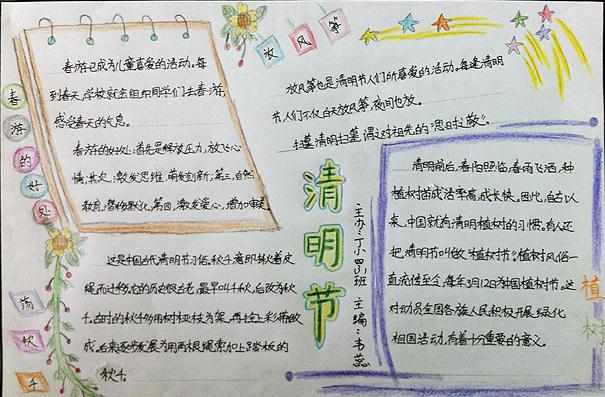 春游的好处
春游已成为儿童喜爱的活动。每
到春天,学校就会组织同学们去春游,
感受春天的气息。
春游的好处:首先是解放压力,放飞心
情;其次,激发思维,萌发创新;第三,自然
教育,潜移默化,第四,激发爱心,增加审美
放风筝
放风筝也是清明节人们所喜爱的活动。每逢清明
节,人们不仅白天放风筝,夜间也放。
扫墓清明扫墓,谓对祖先的"思时敬"。
清明节
主办:丁小四班 主编:韦蕊
荡秋千
这是中国古代清明节习俗。秋千,意即揪着皮
绳而迁移。它的历史很古老,最早叫千秋,后改为秋
千。古时的秋千多用树桠枝为架,再拴上彩带做
成。后来逐步发展为用两根绳索加上踏板的
秋千。
植树
清明前后,春阳照临,春雨飞洒,种
植树苗成活率高,成长快。因此,自古以
来,中国就有清明植树的习惯。有人还
把清明节叫做"植树节"。植树风俗一
直流传至今,每年3月12日为中国植树节。这
对动员全国各族人民积极开展绿化
祖国活动,有着十分重要的意义。